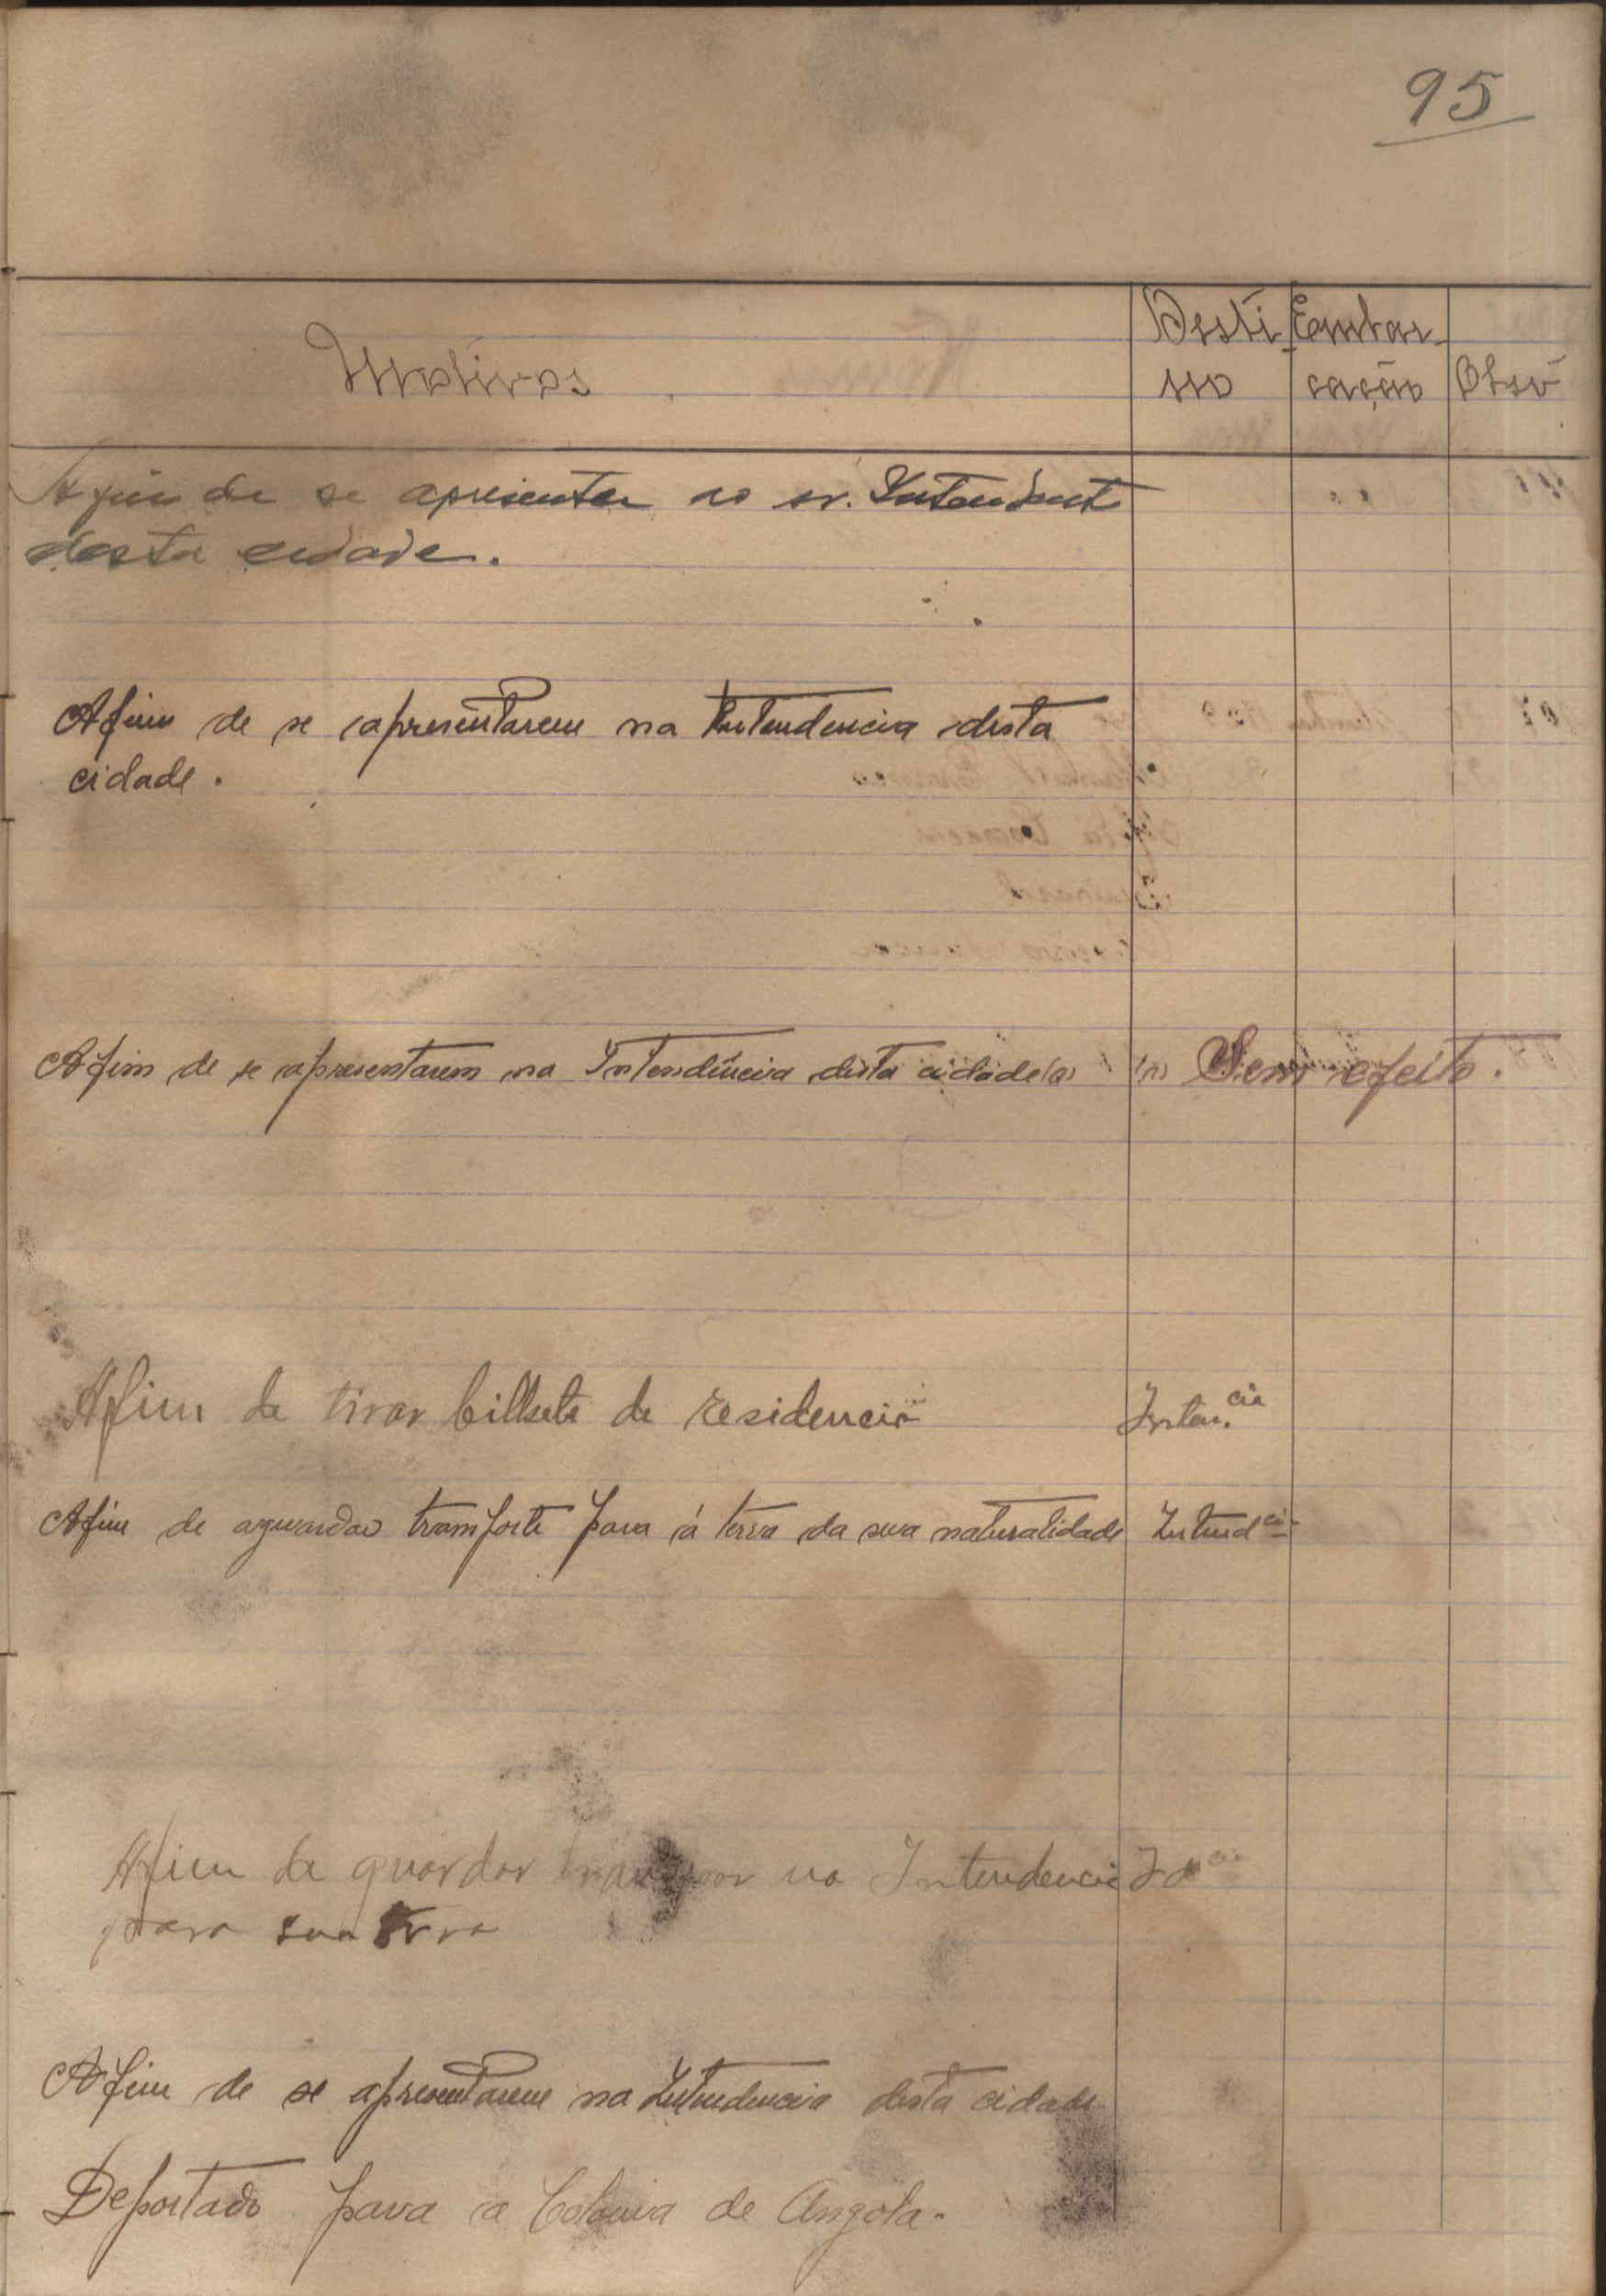 95
Motivos
Desti- Embar-
no cação Obsv
Afim de se apresentar ao sr. Intendent
desta cidade.
Afim de se apresentarem na Intendencia desta
cidade.
Afim de se apresentarem na Intendência desta cidade (a) (a) Sem efeito.
Afim de tirar bilhete de residencia Inten.cia
Afim de aguardar transporte para á terra da sua naturalidade Intendcia
Afim de guardar na Intendencia
para sua terra
Afim de se apresentarem na Intendencia desta cidade
Deportado para a Colonia de Angola.